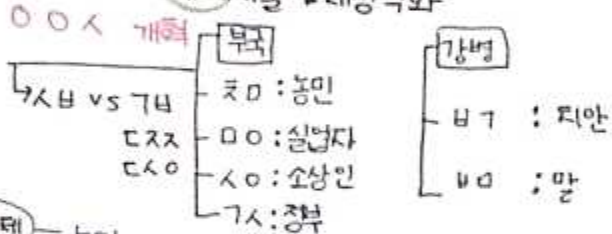 ㅇㅇㅅ 개혁
↳ㅅㅂ vs ㄱㅂ
ㄷㅈㅈ
ㄷㅅㅇ
부국
ㅊㅁ : 농민
ㅁㅇ : 실업자
ㅅㅇ : 소상인
ㄱㅅ : 정부
강병
ㅂㄱ : 치안
ㅂㅁ : 말